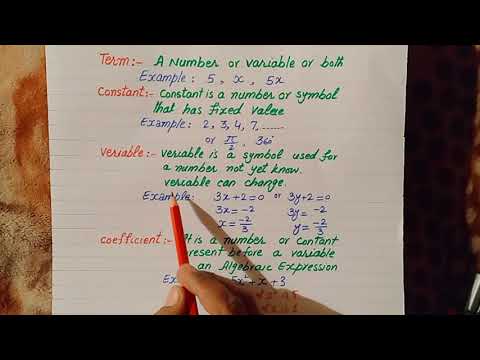 Term:- A Number or variable or both
Example: 5, x, 5x
Constant:- Constant is a number or symbol
that has fixed value
Example: 2, 3, 4, 7, .......
or π/2, 360°
Veriable:- Veriable is a symbol used for
a number not yet know.
Veriable can change.
Example: 3x+2=0 or 3y+2=0
3x = -2 3y = -2
x = -2/3 y = -2/3
coefficient:- It is a number or contant
present before a variable
an Algebraic Expression
Ex 5x² + x + 3